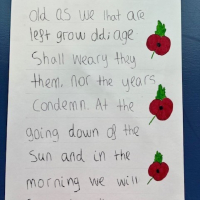 Old as we that are
left grow ddi age
Shall weary they
them, nor the years
Condemn. At the
going down of the
Sun and in the
morning we will